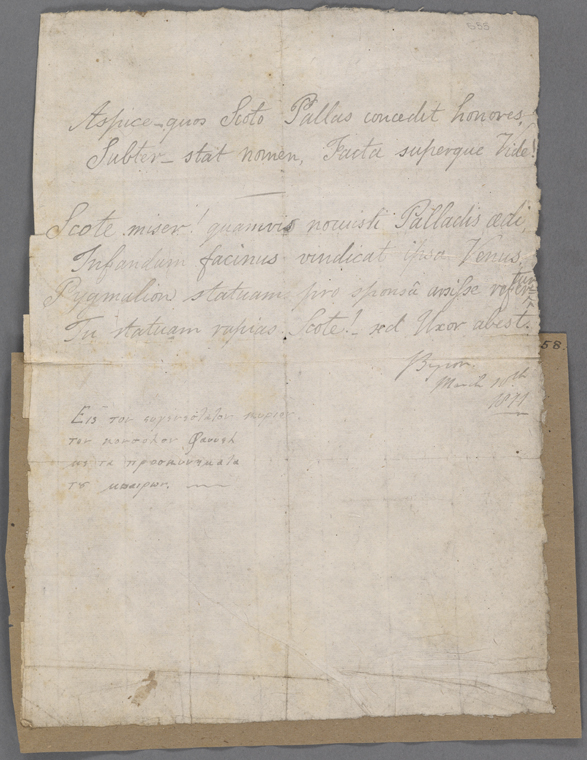 555
Aspice_quos Scoto Pallas concedit honores,
Subter_ stat nomen, Facta superque Vide!
Scote miser! quamvis nocuisti Palladis ædi,
Infandum facinus vindicat ipsa Venus,
Pygmalion statuam pro sponsâ arsisse
Tu statuam rapias Scote! sed Uxor abest.
58.
Byron.
March 10th
1811
Εις τον ευγενέστατον κυριον
τον
με τα προσκυνήματα
τȣ μπαιρων.